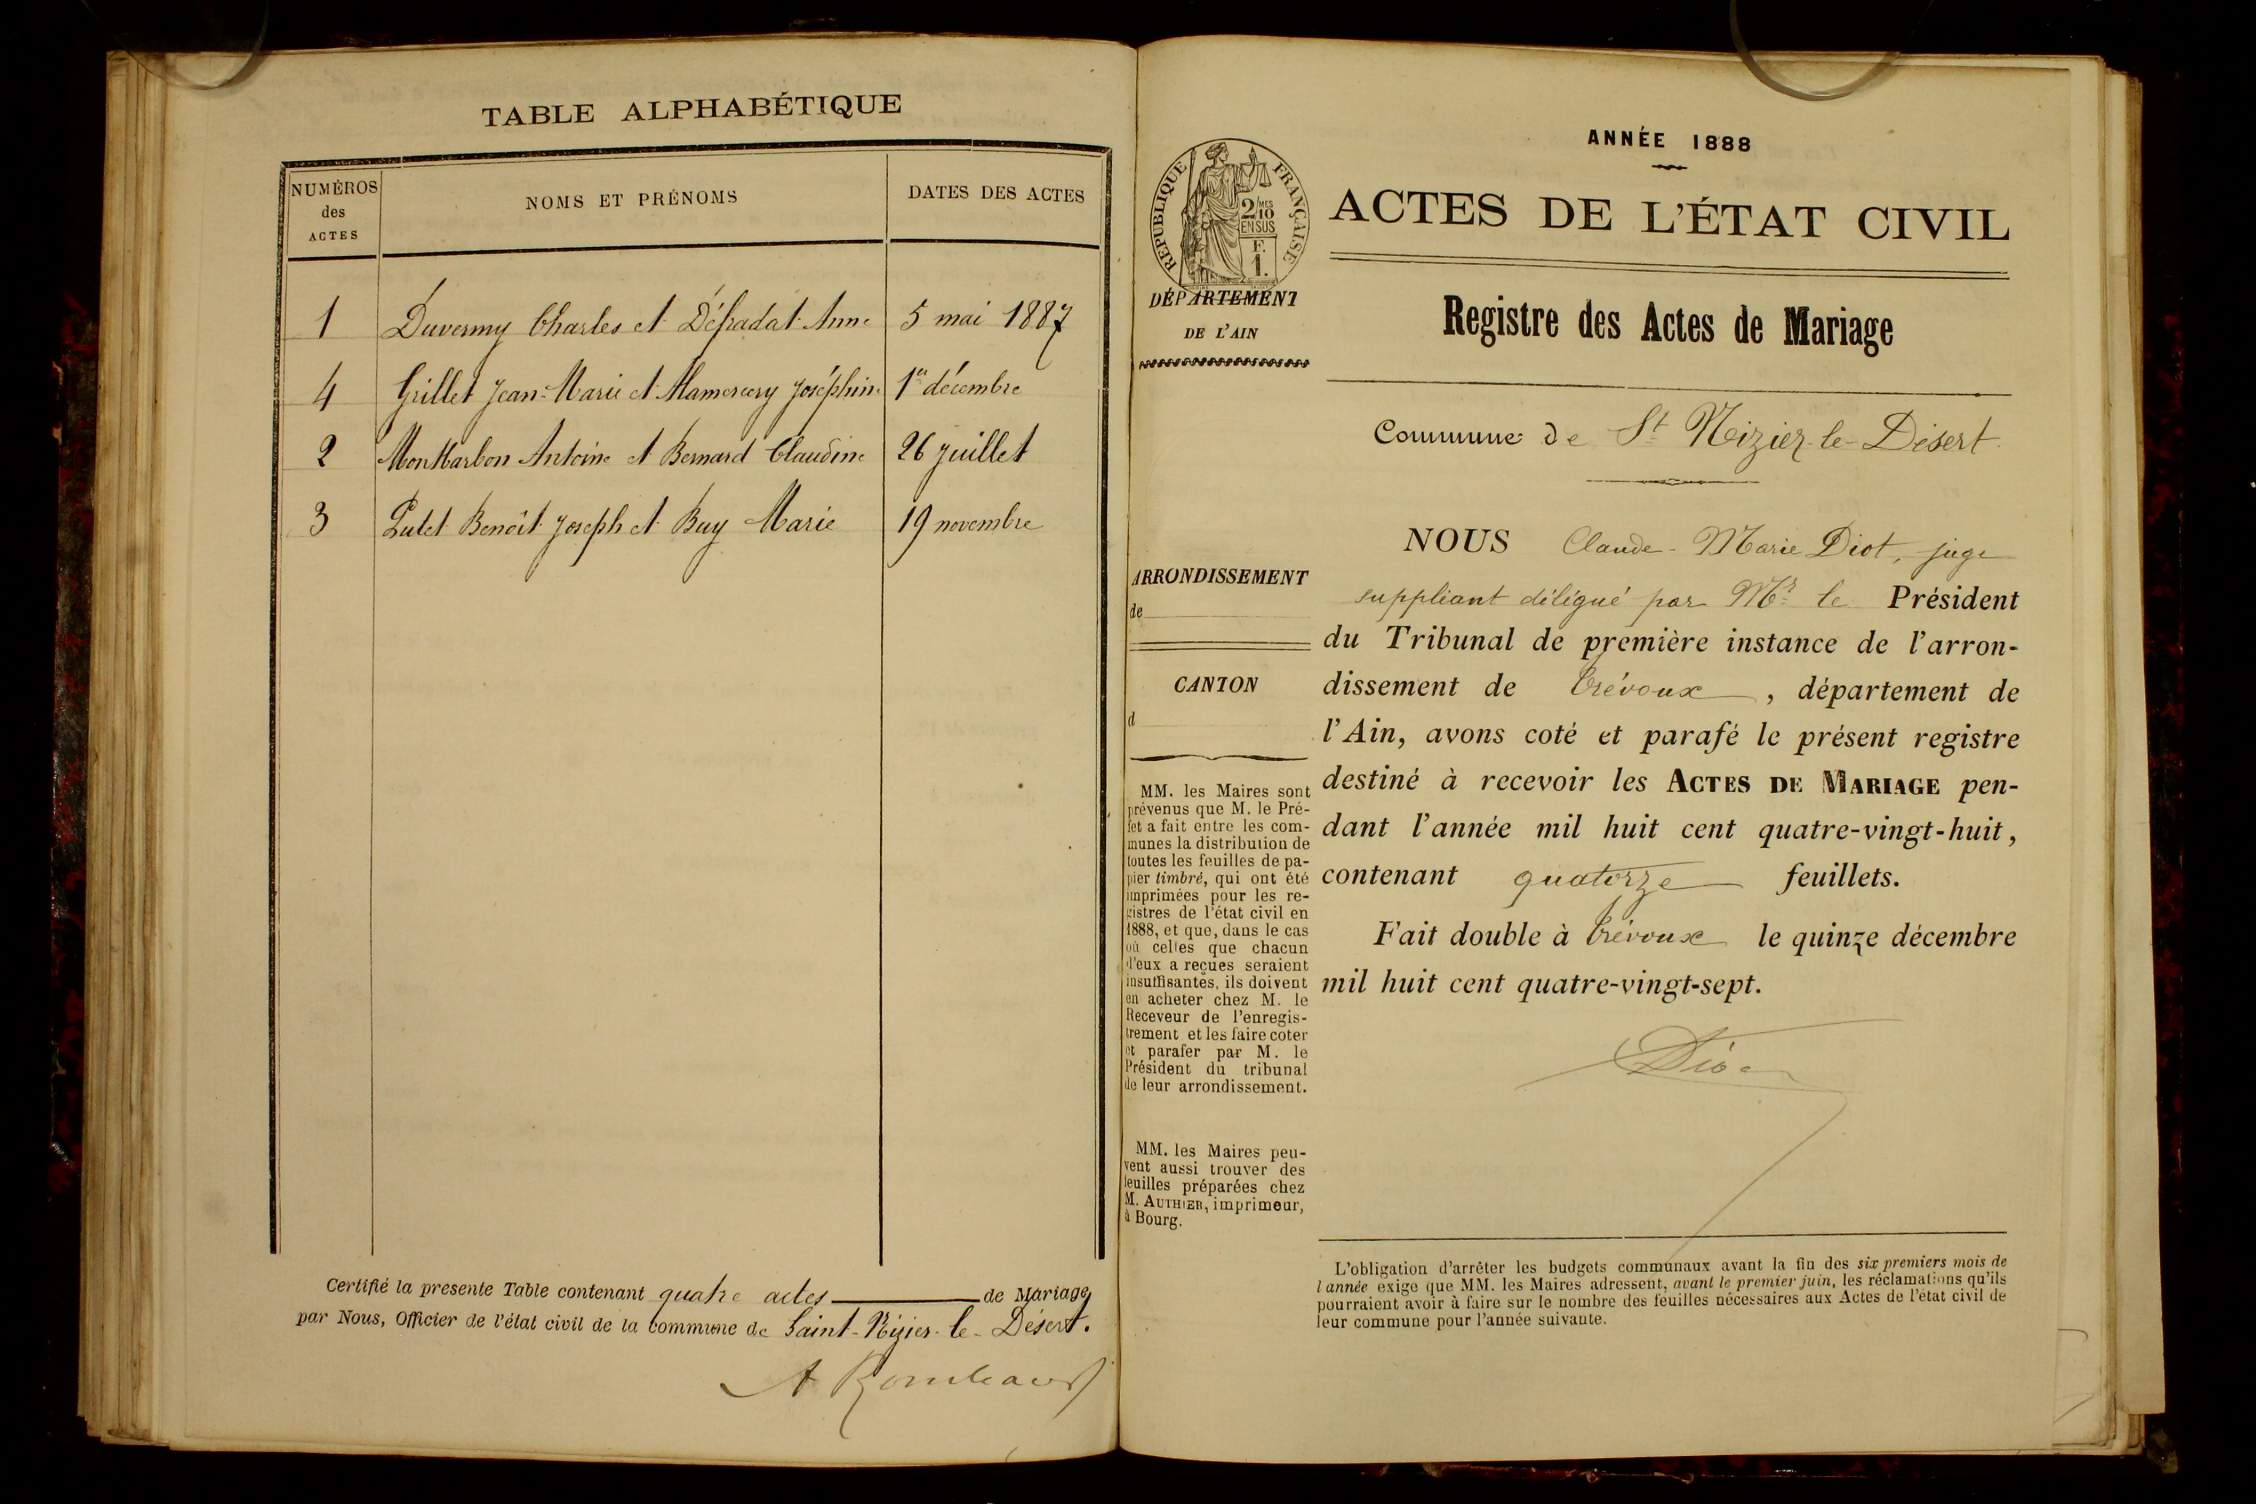 TABLE ALPHABÉTIQUE
NUMÉROS des ACTES
NOMS ET PRÉNOMS
DATES DES ACTES
1 Duvermy Charles et Défradat Anne 5 mai 1887
4 Grillet Jean-Marie et Mamercery Joséphine 1er décembre
2 Montbarbon Antoine et Bernard Claudine 26 Juillet
3 Putet Benoît Joseph et Buy Marie 19 novembre
Certifié la presente Table contenant quatre actes de Mariage
par Nous, Officier de l'état civil de la commune de Saint-Nizier-le-Désert.
RÉPUBLIQUE FRANÇAISE
2/MES
10
EN SUS
F.
1.
DÉPARTEMENT
DE L'AIN
ARRONDISSEMENT
de
CANTON
d
MM. les Maires sont
prévenus que M. le Pré-
fet a fait entre les com-
munes la distribution de
toutes les feuilles de pa-
pier timbré, qui ont été
imprimées pour les re-
gistres de l'état civil en
1888, et que, dans le cas
où celles que chacun
d'eux a reçues seraient
insuffisantes, ils doivent
en acheter chez M. le
Receveur de l'enregis-
trement et les faire coter
et parafer par M. le
Président du tribunal
de leur arrondissement.
MM. les Maires peu-
vent aussi trouver des
feuilles préparées chez
M. AUTHIER, imprimeur,
à Bourg.
ANNÉE 1888
ACTES DE L'ÉTAT CIVIL
Registre des Actes de Mariage
Commune de St Nizier-le-Désert
NOUS Claude-Marie Diot, juge
suppléant délégué par Mr le Président
du Tribunal de première instance de l'arron-
dissement de Trévoux, département de
l'Ain, avons coté et parafé le présent registre
destiné à recevoir les ACTES DE MARIAGE pen-
dant l'année mil huit cent quatre-vingt-huit,
contenant quatorze feuillets.
Fait double à Trévoux le quinze décembre
mil huit cent quatre-vingt-sept.
Diot
L'obligation d'arrêter les budgets communaux avant la fin des six premiers mois de
l'année exige que MM. les Maires adressent, avant le premier juin, les réclamations qu'ils
pourraient avoir à faire sur le nombre des feuilles nécessaires aux Actes de l'état civil de
leur commune pour l'année suivante.